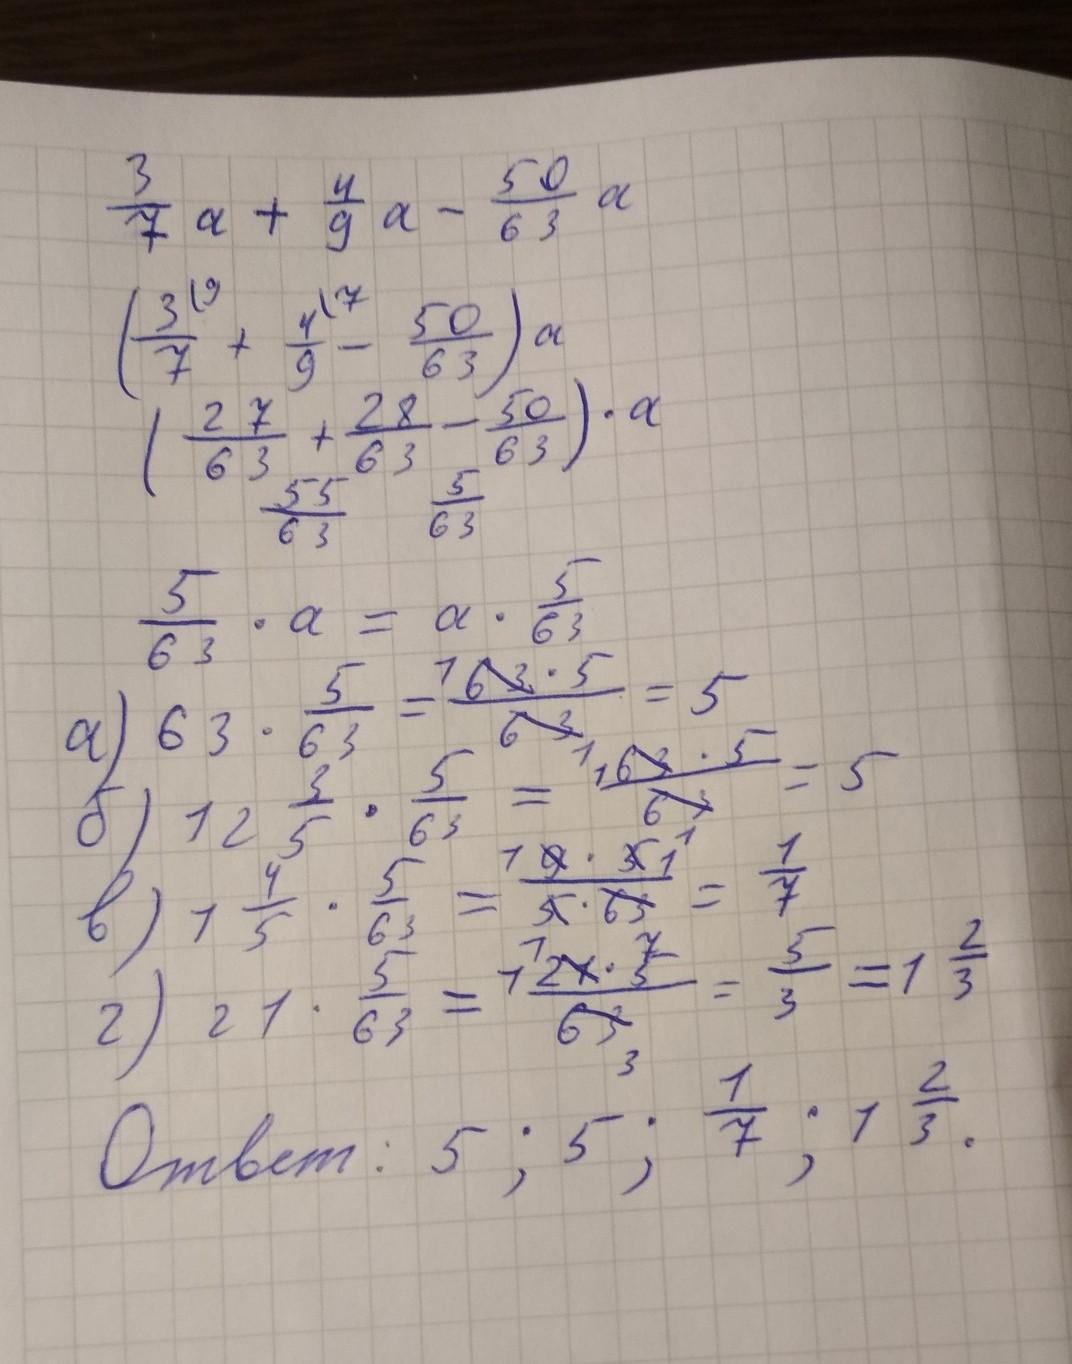 3/7 a + 4/9 a - 50/63 a
(3/7 (9 + 4/9 (7 - 50/63) a
(27/63 + 28/63 - 50/63) · a
55/63 5/63
5/63 · a = a · 5/63
а) 63 · 5/63 = 1 63 · 5 / 63 1 = 5
б) 12 3/5 · 5/63 = 1 63 · 5 / 63 1 = 5
в) 1 4/5 · 5/63 = 1 9 · 5 1 / 5 · 63 = 1/7
г) 21 · 5/63 = 1 21 · 5 / 63 3 = 5/3 = 1 2/3
Ответ: 5 ; 5 ; 1/7 ; 1 2/3.